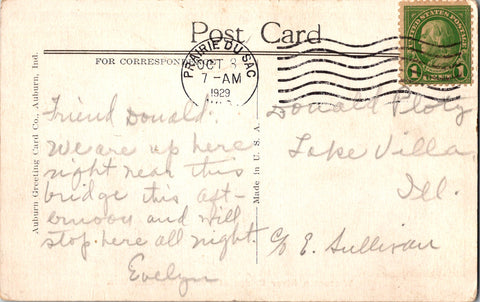 Post Card
FOR CORRESPON
PRAIRIE DU SAC
OCT 8
7-AM
1929
UNITED STATES POSTAGE
1 1
Auburn Greeting Card Co., Auburn, Ind.
Made in U. S. A.
Friend Donald:
We are up here
right near this
bridge this aft-
ernoon and will
stop here all night.
Evelyn
Donald Plotz
Lake Villa
Ill.
c/o E. Sullivan